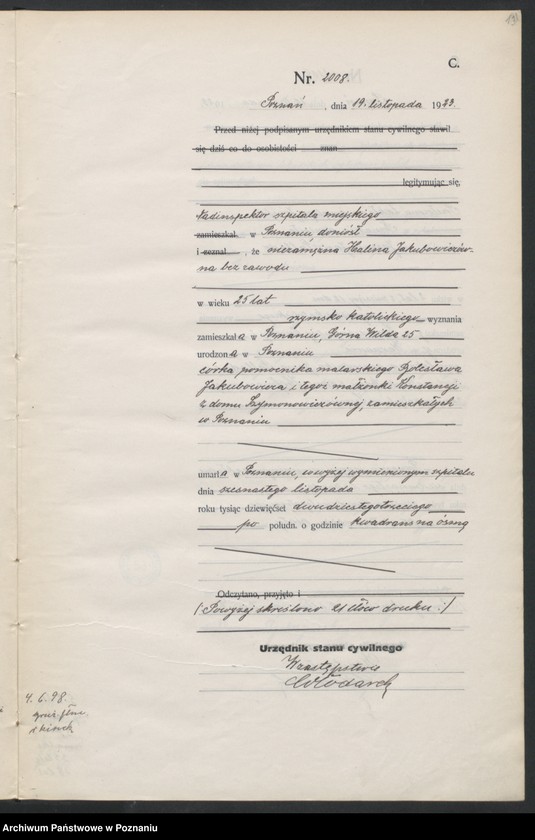 C.
Nr. 2008.
Poznań, dnia 19. listopada 1923.
Przed niżej podpisanym urzędnikiem stanu cywilnego stawił
się dziś co do osobistości znan
legitymując się,
Nadinspektor szpitala miejskiego
zamieszkał w Poznaniu doniósł
i zeznał, że niezamężna Halina Jakubowiczów-
na bez zawodu
w wieku 25 lat
rzymsko katolickiego wyznania
zamieszkała w Poznaniu, Górna Wilda 25
urodzona w Poznaniu
córka pomocnika malarskiego Bolesława
Jakubowicza i tegoż małżonki Konstancji
z domu Szymonowiczównej, zamieszkałych
w Poznaniu
umarła w Poznaniu, w wyżej wymienionym szpitalu
dnia szesnastego listopada
roku tysiąc dziewięćset dwudziestegotrzeciego
po połudn. o godzinie kwadrans na ósmą
Odczytano, przyjęto i
/Powyżej skreślono 21 słów druku:/
Urzędnik stanu cywilnego
W zastępstwie
4. 6. 98.
Archiwum Państwowe w Poznaniu